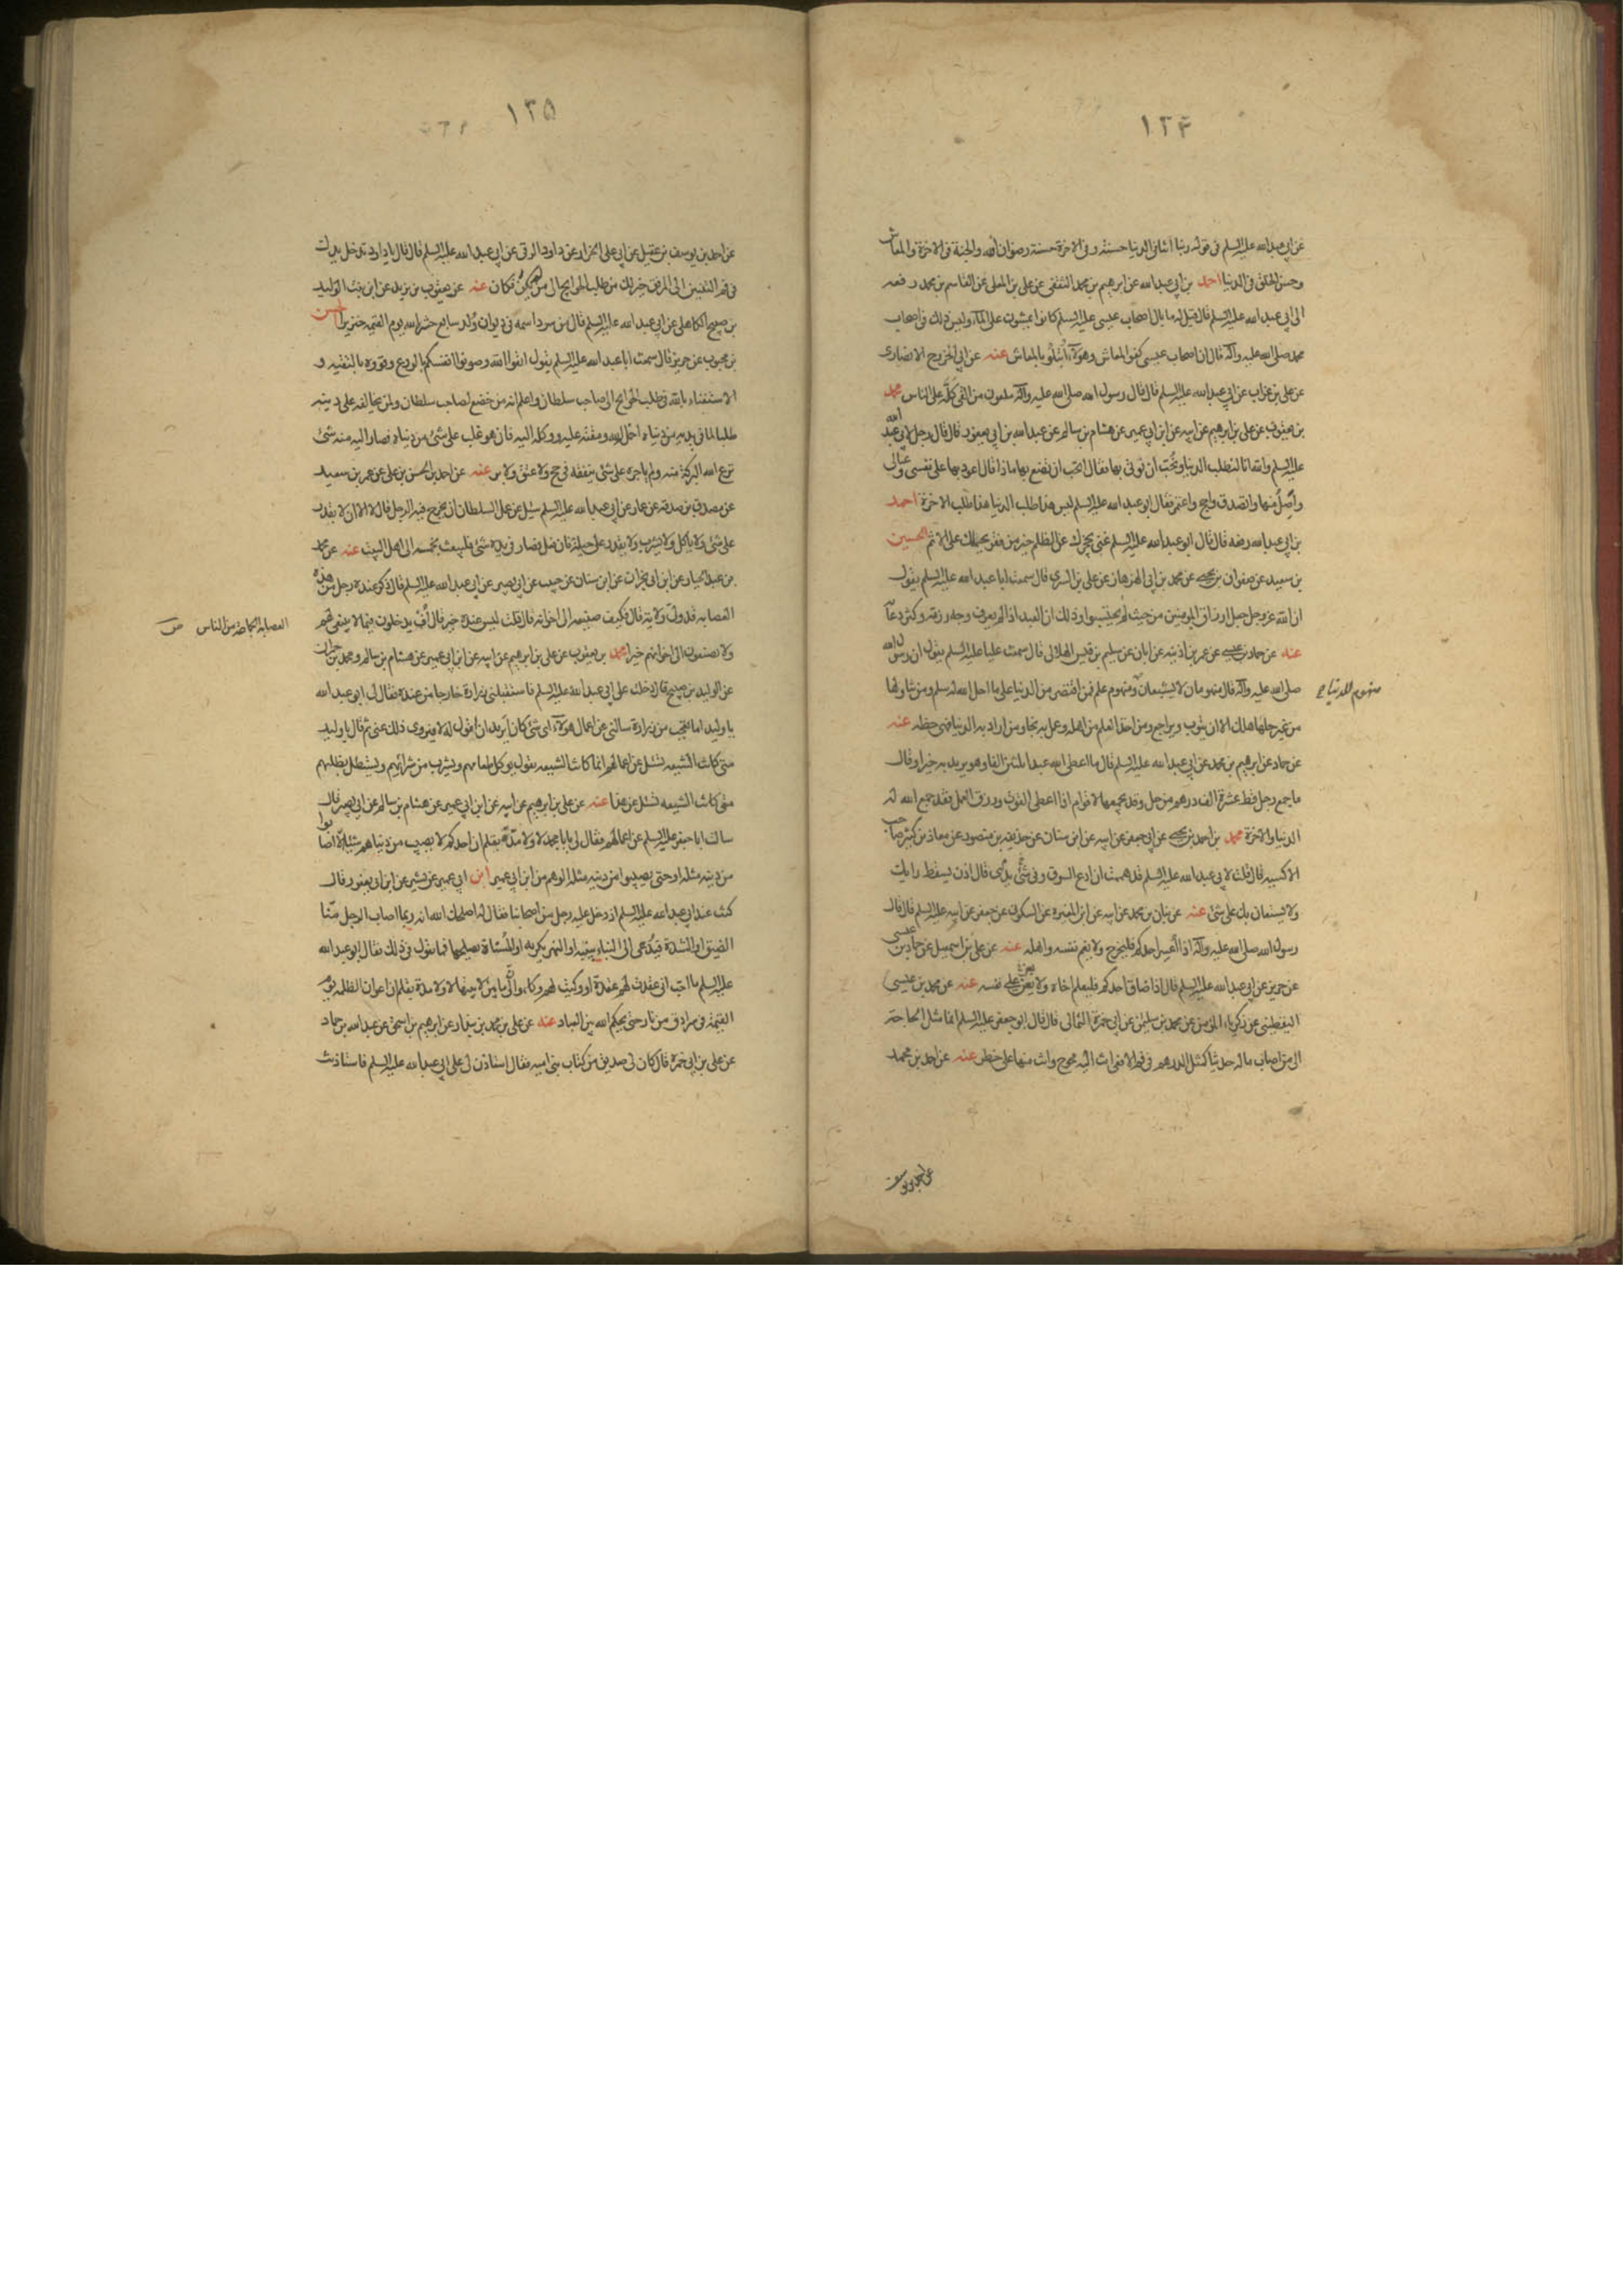 ١٣۴
عن ابى عبد الله عليه السلم فى قوله ربنا اتنا فى الدنيا حسنة وفى الاخرة حسنة رضوان الله والجنة فى الاخرة والمعاش
وحسن الخلق فى الدنيا احمد بن ابى عبد الله عن ابرهيم بن محمد الثقفى عن على بن المعلى عن القاسم بن محمد رفعه
الى ابى عبد الله عليه السلم قال قيل له ما بال اصحاب عيسى عليه السلم كانوا يمشون على الماء وليس ذلك فى اصحاب
محمد صلى الله عليه وآله قال ان اصحاب عيسى كفوا المعاش وهؤلاء ابتلوا بالمعاش عنه عن ابى الخزرج الانصارى
عن على بن غراب عن ابى عبد الله عليه السلم قال قال رسول الله صلى الله عليه وآله ملعون من القى كله على الناس محمد
بن يعقوب عن على بن ابرهيم عن ابيه عن ابن ابى عمير عن هشام بن سالم عن عبد الله بن ابى يعفور قال قال رجل لابى عبد الله
عليه السلم والله انا لنطلب الدنيا ونحب ان نوتى بها فقال تحب ان تصنع بها ماذا قال اعود بها على نفسى وعيالى
واصل منها واتصدق واحج واعتمر فقال ابو عبد الله عليه السلم ليس هذا طلب الدنيا هذا طلب الاخرة احمد
بن ابى عبد الله رفعه قال قال ابو عبد الله عليه السلم غنى يحجزك عن الظلم خير من فقر يحملك على الاثم الحسين
بن سعيد عن صفوان بن يحيى عن محمد بن ابى الهزهاز عن على بن السرى قال سمعت ابا عبد الله عليه السلم يقول
ان الله عز وجل جعل ارزاق المومنين من حيث لم يحتسبوا وذلك ان العبد اذا لم يعرف وجه رزقه وكثر دعاه
عنه عن حماد بن عيسى عن عمر بن اذينه عن ابان عن سليم بن قيس الهلالى قال سمعت عليا عليه السلم يقول ان رسول الله
صلى الله عليه وآله قال منهومان لا يشبعان ومنهوم علم فمن اقتصر من الدنيا على ما احل الله له سلم ومن تناولها
منهوم للدنيا
من غير حلها هلك الا ان يتوب ويراجع ومن اخذ العلم من اهله وعمل به نجا ومن اراد به الدنيا فهى حظه عنه
عن حماد عن ابرهيم بن محمد عن ابى عبد الله عليه السلم قال ما اعطى الله عبدا ثلثين الفا وهو يريد به خيرا وقال
ما جمع رجل قط عشرة الف درهم من حل وقد يجمعها لاقوام اذا اعطى القوت ورزق العمل فقد جمع الله له
الدنيا والاخرة محمد بن احمد بن يحيى عن ابى جعفر عن ابيه عن ابن سنان عن حذيفه بن منصور عن معاذ بن كثير صاحب
الاكسيه قال قلت لابى عبد الله عليه السلم قد هممت ان ادع السوق وفى يدى شئ قال اذن يسقط رايك
ولا يستعان بك على شئ عنه عن بنان بن محمد عن ابيه عن ابن المغيره عن السكونى عن جعفر عن ابيه عليه السلم قال قال
رسول الله صلى الله عليه وآله اذا اعسر احدكم فليخرج ولا يغم نفسه واهله عنه عن على بن اسمعيل عن حماد بن عيسى
عن حريز عن ابى عبد الله عليه السلم قال اذا ضاق احدكم فليعلم اخاه ولا يعين على نفسه عنه عن محمد بن عيسى
اليقطينى عن زكريا المؤمن عن محمد بن سليمن عن ابى حمزة الثمالى قال قال ابو جعفر عليه السلم انما مثل الحاجة
الى من اصاب ماله حديثا كمثل الدرهم فى فم الافعى انت اليه محوج وانت منها على خطر عنه عن احمد بن محمد
عن احمد بن يوسف
١٣۵
عن احمد بن يوسف بن عقيل عن ابى على الخزاز عن داود الرقى عن ابى عبد الله عليه السلم قال قال يا داود تدخل يدك
فى فم التنين الى المرفق خير لك من طلب الحوايج الى من لم يكن فكان عنه عن يعقوب بن يزيد عن ابن بنت الوليد
بن صبيح الكاهلى عن ابى عبد الله عليه السلم قال من سود اسمه فى ديوان ولد سابع حشره الله يوم القيمه خنزيرا الحسن
بن محبوب عن حريز قال سمعت ابا عبد الله عليه السلم يقول اتقوا الله وصونوا انفسكم بالورع وقووه بالتقيه و
الاستغناء بالله عن طلب الحوايج الى صاحب سلطان واعلم انه من خضع لصاحب سلطان ولمن يخالفه على دينه
طلبا لما فى يديه من دنياه اخمله الله ومقته عليه ووكله اليه فان هو غلب على شئ من دنياه فصار اليه منه شئ
نزع الله البركة منه ولم ياجره على شئ ينفقه فى حج ولا عتق ولا بر عنه عن احمد بن الحسن بن على عن عمر بن سعيد
عن مصدق بن صدقه عن عمار عن ابى عبد الله عليه السلم سئل عن عمل السلطان يخرج فيه الرجل قال لا الا ان لا يقدر
على شئ ولا ياكل ولا يشرب ولا يقدر على حيلة فان فعل فصار فى يده شئ فليبعث بخمسه الى اهل البيت عنه عن محمد
بن عبد الجبار عن ابن ابى نجران عن ابن سنان عن حبيب عن ابى بصير عن ابى عبد الله عليه السلم قال ذكر عنده رجل من هذه
العصابه قد ولى ولاية قال فكيف صنيعه الى اخوانه قال قلت ليس عنده خير قال اف يدخلون فيما لا ينبغى لهم
العصابه الجماعة من الناس ص
ولا يصنعون الى اخوانهم خيرا محمد بن يعقوب عن على بن ابرهيم عن ابيه عن ابن ابى عمير عن هشام بن سالم ومحمد بن حمران
عن الوليد بن صبيح قال دخلت على ابى عبد الله عليه السلم فاستقبلنى زرارة خارجا من عنده فقال لى ابو عبد الله
يا وليد اما تعجب من زرارة سالنى عن اعمال هؤلاء اى شئ كان يريد ان اقول له لا فيروى ذلك عنى ثم قال يا وليد
متى كانت الشيعه تسئل عن اعمالهم انما كانت الشيعه تقول يوكل طعامهم ويشرب من شرابهم ويستظل بظلهم
متى كانت الشيعه تسئل عن هذا عنه عن على بن ابرهيم عن ابيه عن ابن ابى عمير عن هشام بن سالم عن ابى بصير قال
سالت ابا جعفر عليه السلم عن اعمالهم فقال لى يا با محمد لا ولا مدة بقلم ان احدكم لا يصيب من دنياهم شيئا الا اصابوا
من دينه مثله او حتى يصيبوا من دينه مثله الوهم من ابن ابى عمير ابن ابى عمير عن بشير عن ابن ابى يعفور قال
كنت عند ابى عبد الله عليه السلم اذ دخل عليه رجل من اصحابنا فقال له اصلحك الله انه ربما اصاب الرجل منا
الضيق او الشدة فيدعى الى البناء يبنيه او النهر يكريه او المسناة يصلحها فما تقول فى ذلك فقال ابو عبد الله
عليه السلم ما احب انى عقدت لهم عقدة او وكيت لهم وكاء وان لى ما بين لابتيها لا ولا مدة بقلم ان اعوان الظلمه يوم
القيمة فى سرادق من نار حتى يحكم الله بين العباد عنه عن على بن محمد بن بندار عن ابرهيم بن اسحق عن عبد الله بن حماد
عن على بن ابى حمزة قال كان لى صديق من كتاب بنى اميه فقال استاذن لى على ابى عبد الله عليه السلم فاستاذنت